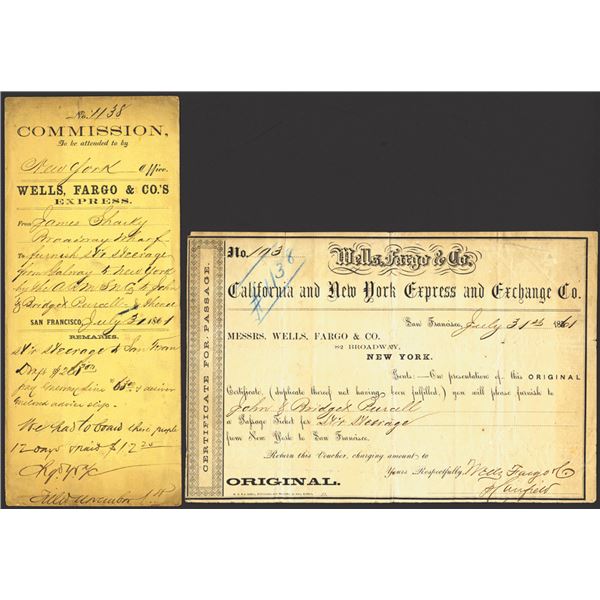 No. 1138
COMMISSION,
To be attended to by
New York Office.
WELLS, FARGO & CO.'S
EXPRESS.
From James Sharky
Broadway Wharf
To furnish Str Steerage
from Galway to New York
by the A.R.M.S.N.Co to John
& Bridget Purcell & thence
SAN FRANCISCO, July 31 1861
REMARKS.
Str Steerage to San Fran
pay
enclosed advice slips.
We had to board these people
12 days & paid $12
Filed November 1st
CERTIFICATE FOR PASSAGE.
No. 193
# 1138
Wells, Fargo & Co.
California and New York Express and Exchange Co.
San Francisco, July 31st 1861
MESSRS. WELLS, FARGO & CO.
82 BROADWAY,
NEW YORK.
Gents:—On presentation of this ORIGINAL
Certificate, (duplicate thereof not having been fulfilled,) you will please furnish to
John & Bridget Purcell
a Passage Ticket for Str Steerage
from New York to San Francisco.
Return this Voucher, charging amount to
Yours Respectfully, Wells Fargo & Co
ORIGINAL.